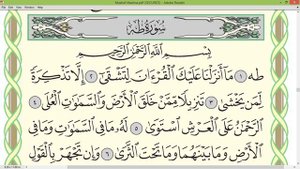 Mushaf Madina.pdf (SECURED) - Adobe Reader
سُورَةُ طه
بِسْمِ ٱللَّهِ ٱلرَّحْمَٰنِ ٱلرَّحِيمِ
طه ١ مَآ أَنزَلْنَا عَلَيْكَ ٱلْقُرْءَانَ لِتَشْقَىٰٓ ٢ إِلَّا تَذْكِرَةً
لِّمَن يَخْشَىٰ ٣ تَنزِيلًا مِّمَّنْ خَلَقَ ٱلْأَرْضَ وَٱلسَّمَٰوَٰتِ ٱلْعُلَى ٤
ٱلرَّحْمَٰنُ عَلَى ٱلْعَرْشِ ٱسْتَوَىٰ ٥ لَهُۥ مَا فِى ٱلسَّمَٰوَٰتِ وَمَا فِى
ٱلْأَرْضِ وَمَا بَيْنَهُمَا وَمَا تَحْتَ ٱلثَّرَىٰ ٦ وَإِن تَجْهَرْ بِٱلْقَوْلِ